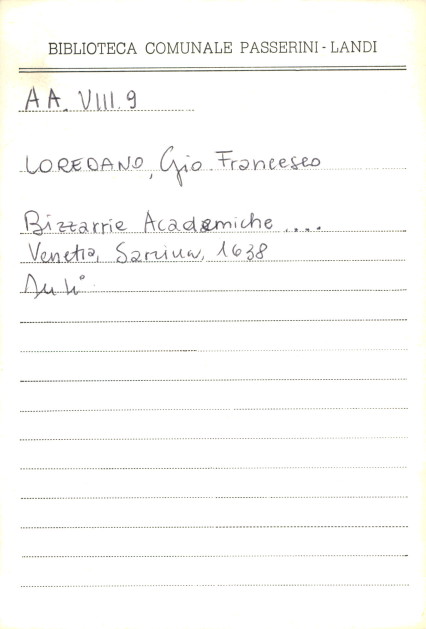 BIBLIOTECA COMUNALE PASSERINI - LANDI
AA. VIII. 9
LOREDANO, Gio. Francesco
Bizzarrie Academiche ....
Venetia, Sarzina, 1638